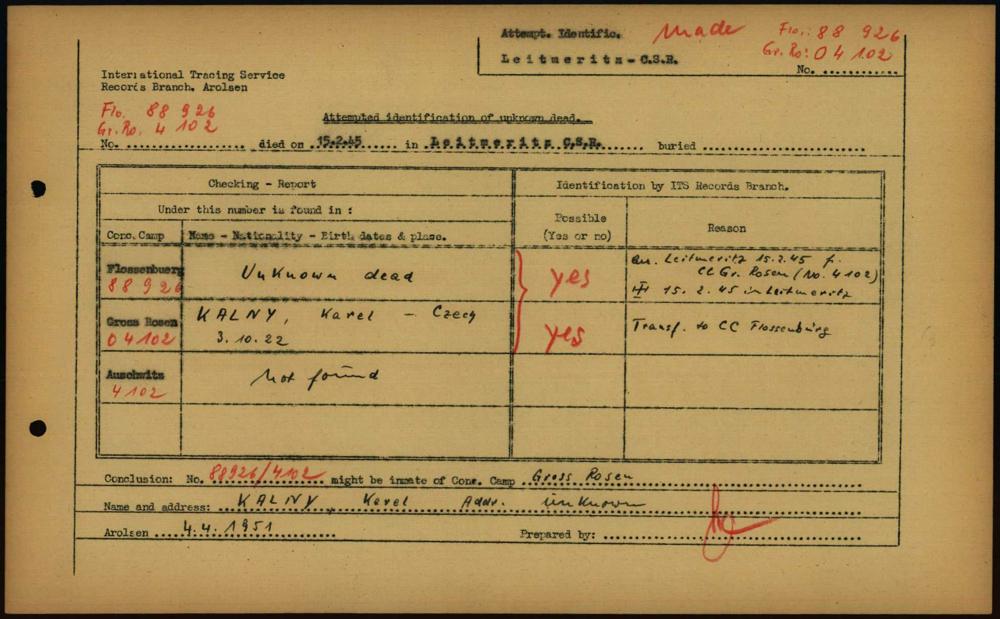 Attempt. Identific. Made Flo.: 88 926
Gr. Ro: 04 102
Leitmeritz - C.S.R.
No. ............
International Tracing Service
Records Branch, Arolsen
Flo. 88 926
Gr. Ro. 4 102
Attempted identification of unknown dead.
No. ................. died on ..15.2.45...... in ..Leitmeritz C.S.R....... buried .......................
Checking - Report
Identification by ITS Records Branch.
Under this number is found in :
Possible (Yes or no)
Reason
Conc. Camp
Name - Nationality - Birth dates & place.
Flossenbuerg 88 926
Unknown dead
yes
Leitmeritz 15.2.45 f.
CC Gr. Rosen (No. 4102)
15. 2. 45 in Leitmeritz
Gross Rosen 04102
KALNY, Karel - Czech
3.10.22
yes
Transf. to CC Flossenbürg
Auschwitz 4102
Not found
Conclusion: No. 88926/4102 might be inmate of Conc. Camp Gross Rosen
Name and address: KALNY, Karel Addr. unknown
Arolsen 4.4.1951
Prepared by: